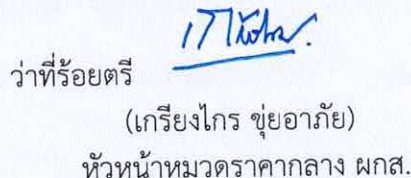 ว่าที่ร้อยตรี
(เกรียงไกร ขุ่ยอาภัย)
หัวหน้าหมวดราคากลาง ผกส.